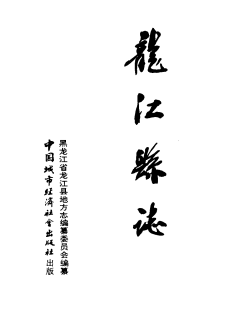 龍江縣誌
黑龙江省龙江县地方志编纂委员会编纂
中国城市经济社会出版社出版